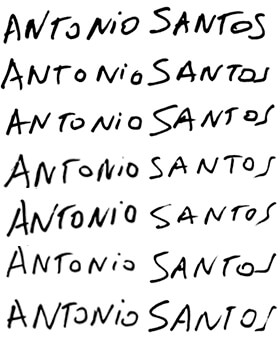 ANTONiO SANTOS
ANTONiO SANTOS
ANTONiO SANTOS
ANTONiO SANTOS
ANTONIO SANTOS
ANTONiO SANTOS
ANTONIO SANTOS